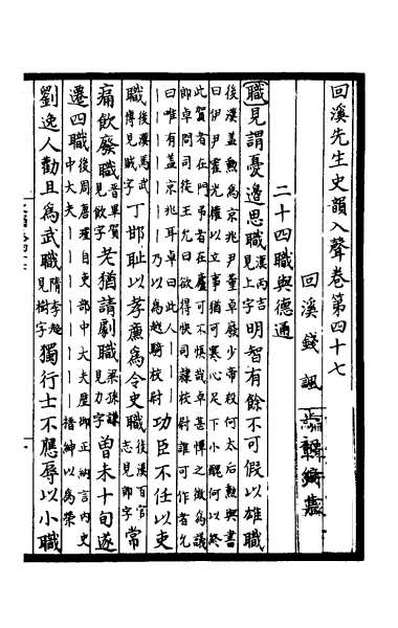 回溪先生史韻入聲卷第四十七
回溪錢諷
二十四職與德通
職見謂憂邊思職漢丙吉見上字明智有餘不可假以雄職
後漢蓋勳為京兆尹董卓廢少帝殺何太后勳與書
曰伊尹霍光權以立功猶可寒心足下小醜何以終
此賀者在門弔者在廬可不慎哉卓甚憚之徵為議
郎卓問司徒王允曰欲得快司隸校尉誰可作者允
曰唯有蓋京兆耳卓曰此人丨丨丨丨丨丨丨丨乃以為越騎校尉功臣不任以吏
職後漢馬武傳見賊字丁邯恥以孝廉為令史職後漢百官志見郎字常
痛飲廢職晉畢卓見飲字老猶請劇職梁孫謙見力字曾未十旬遂
遷四職後周唐瑾自吏部中大夫歷御正納言內史中大夫丨丨丨丨丨丨丨搢紳以為榮
劉逸人勸且為武職隋李見樹字獨行士不應辱以小職